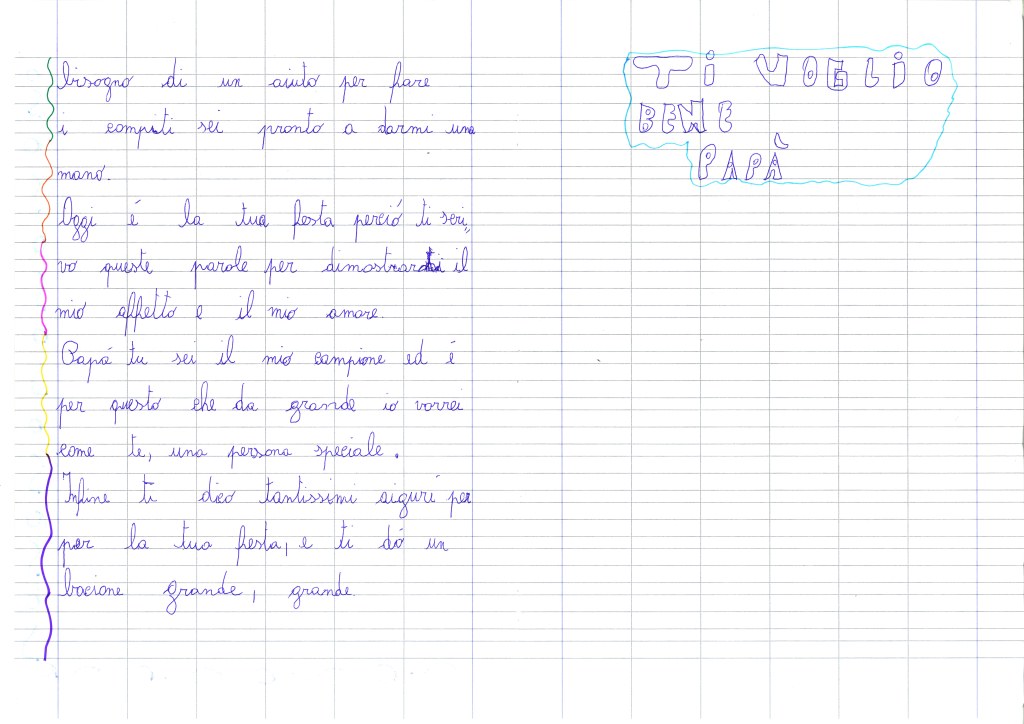 bisogno di un aiuto per fare
i compiti sei pronto a darmi una
mano.
Oggi é la tua festa perció ti scri„
vo queste parole per dimostrarti il
mio affetto e il mio amore.
Papá tu sei il mio campione ed é
per questo che da grande io vorrei
come te, una persona speciale.
Infine ti dico tantissimi aiguri per
per la tua festa, e ti dó un
bacione grande, grande.
TI VOGLIO
BENE
PAPÀ